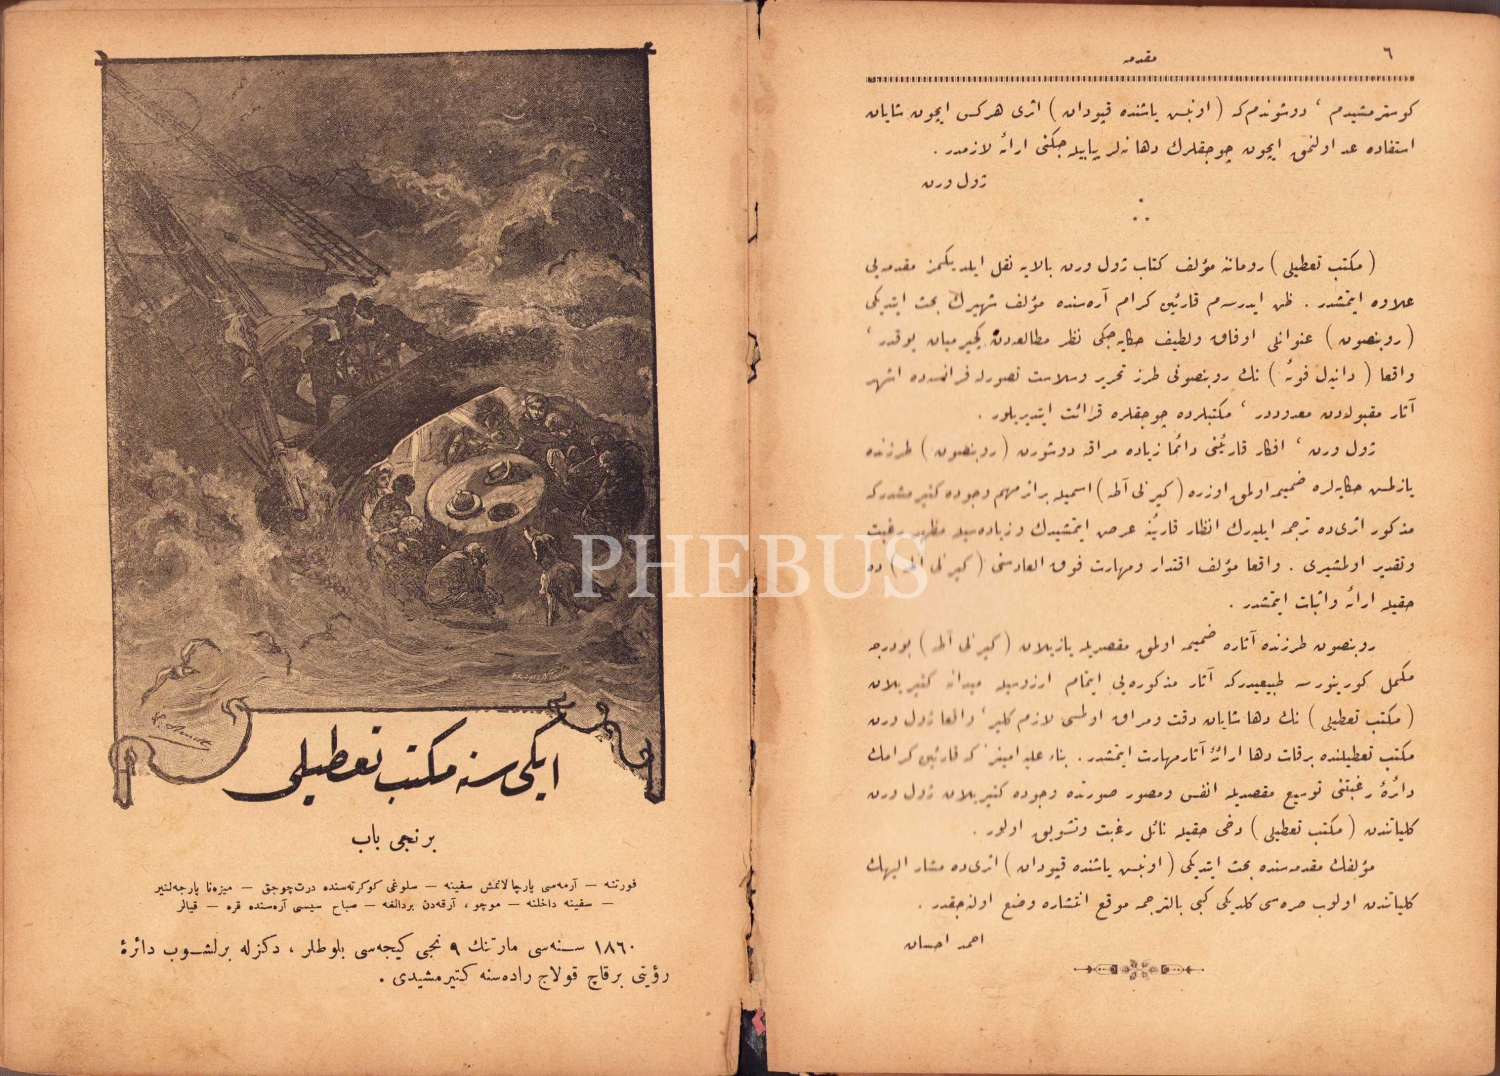 ٦
مقدمه
كوسترمشيدم ، دوشوندم‌كه ( اون‌بش ياشنده قپودان ) اثرى هركس ايچون شايان
استفاده عد اولنمق ايچون چوجقلرك دها نه‌لر ياپابيله‌جكنى ارائه لازمدر .
ژول ورن
( مكتب تعطيلى ) رومانه مؤلف كتاب ژول ورن بالايه نقل ايلديكمز مقدمه‌يى
علاوه ايتمشدر . ظن ايدرسه‌م قارئين كرام آره‌سنده مؤلف شهيرك بحث ايتديكى
( روبنصون ) عنوانلى اوفاق ولطيف حكايه‌جكى نظر مطالعه‌دن كچيرميان يوقدر ،
واقعا ( دانيه‌ل فوئه ) نك روبنصونى طرز تحرير وسلاست تصورله فرانسه‌ده اشهر
آثار مقبوله‌دن معدوددر ، مكتبلرده چوجقلره قرائت ايتديريلور .
ژول ورن ، افكار قارئينى دائما زياده مراقه دوشورن ( روبنصون ) طرزنده
يازلمش حكايه‌لره ضميمه اولمق اوزره ( كيزلى آطه ) اسميله بر اثر مهم وجوده كتيرمشدركه
مذكور اثرى‌ده ترجمه ايله‌رك انظار قارئينه عرض ايتمشيدك وزياده‌سيله مظهر رغبت
وتقدير اولمشيدى . واقعا مؤلف اقتدار ومهارت فوق العاده‌سنى ( كيزلى آطه ) ده
حقيله ارائه واثبات ايتمشدر .
روبنصون طرزنده آثاره ضميمه اولمق مقصديله يازيلان ( كيزلى آطه ) بودرجه
مكمل كورينورسه طبيعيدركه آثار مذكوره‌يى اتمام ارزوسيله ميدانه كتيريلان
( مكتب تعطيلى ) نك دها شايان دقت ومراق اولمسى لازم كلير ، واقعا ژول ورن
مكتب تعطيلنده برقات دها ارائهٔ آثار مهارت ايتمشدر . بناء عليه امينز كه قارئين كرامك
دائرهٔ رغبتنى توسيع مقصديله انفس ومصور صورتده وجوده كتيريلان ژول ورن
كلياتندن ( مكتب تعطيلى ) دخى حقيله نائل رغبت وتشويق اولور .
مؤلفك مقدمه‌سنده بحث ايتديكى ( اون‌بش ياشنده قپودان ) اثرى‌ده مشار اليهك
كلياتندن اولوب صره‌سى كلديكى كبى بالترجمه موقع انتشاره وضع اوله‌جقدر .
احمد احسان
ايكى سنه مكتب تعطيلى
برنجى باب
فورتنه — آرمه‌سى پارچالانمش سفينه — سلوغى كوكرته‌سنده درت چوجق — ميزه‌نا پارچه‌لنير
— سفينه داخلنه — موچو ، آرقه‌دن بردالغه — صباح سيسى آره‌سنده قره — قيالر
١٨٦٠ سنه‌سى مارتنك ٩ نجى كيجه‌سى بلوطلر ، دكزله برلشوب دائرهٔ
رؤيتى برقاچ قولاج راده‌سنه كتيرمشيدى .
PHEBUS